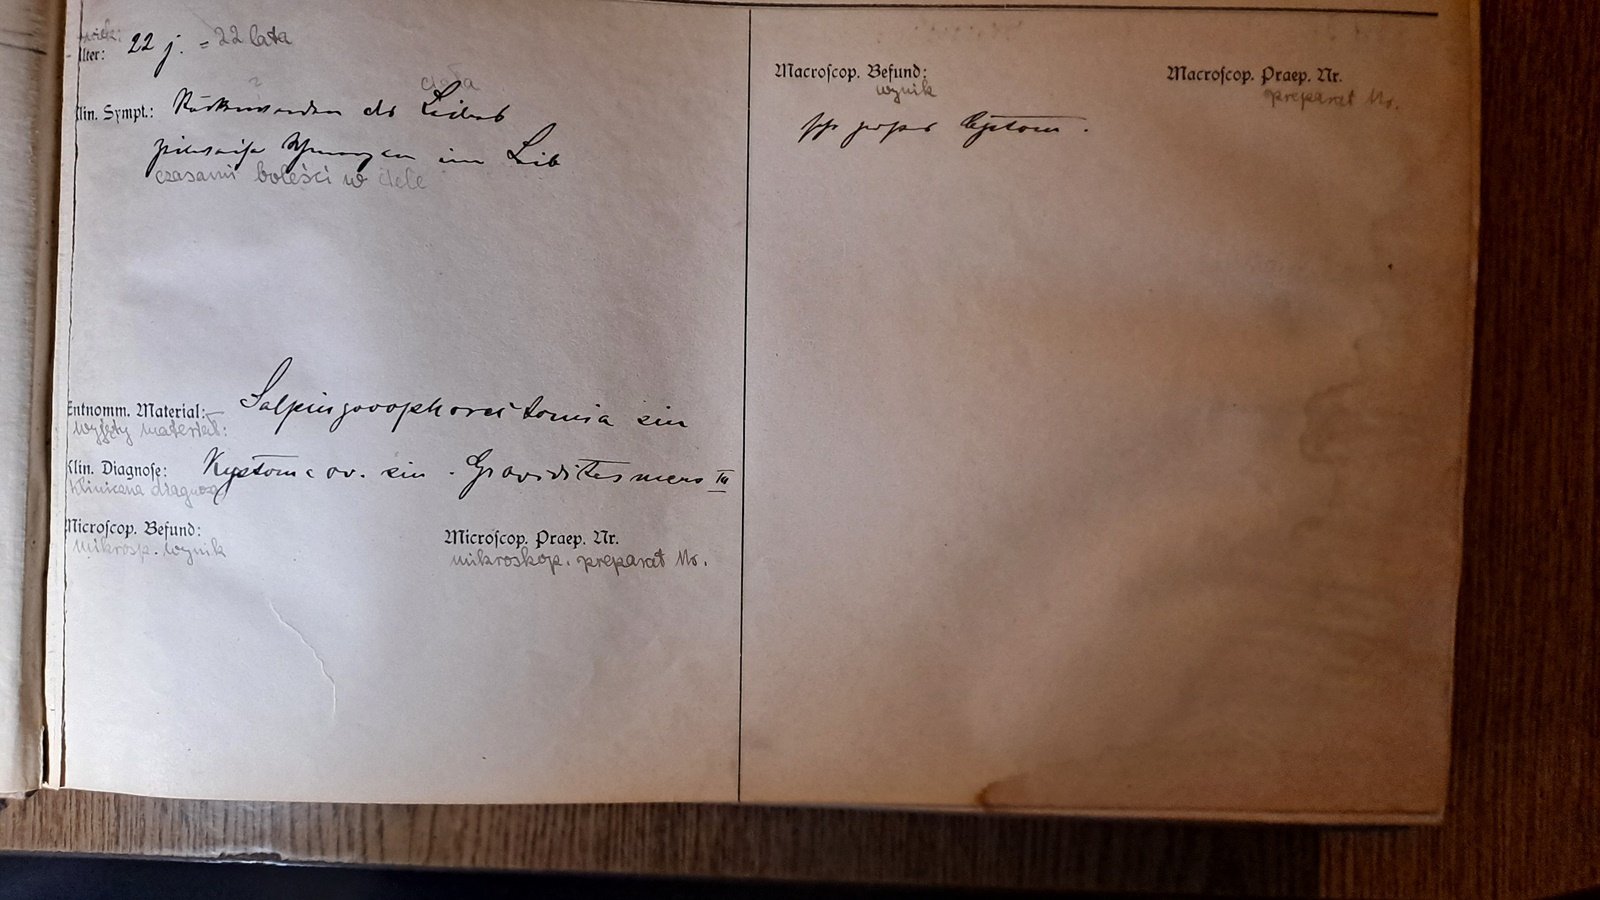 wiek:
Alter: 22 j. = 22 lata
?
ciała
Klin. Sympt.: Stärkerwerden des Leibes
zeitweise Schmerzen im Leib
czasami boleści w ciele
Entnomm. Material: Salpingoophorectomia sin
wyjęty materiał:
Klin. Diagnoſe: Kystoma ov. sin. Graviditas mens III
kliniczna diagnoza
Microſcop. Befund:
mikrosp. wynik
Microſcop. Praep. Nr.
mikroskop. preparat Nr.
Macroſcop. Befund:
wynik
Macroſcop. Praep. Nr.
preparat Nr.
großes Kystom.